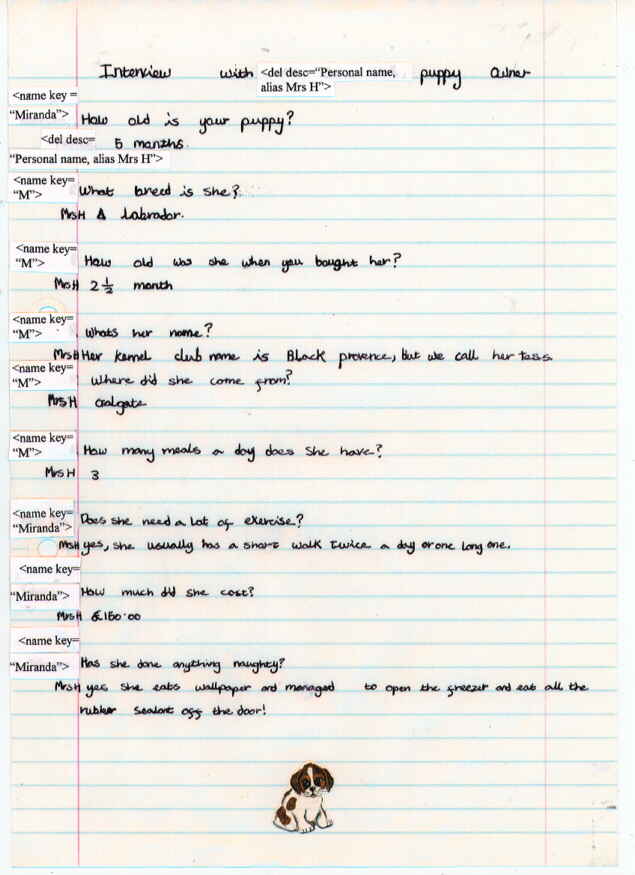 Interview with <del desc="Personal name, alias Mrs H"> puppy owner
<name key =
"Miranda"> How old is your puppy?
<del desc= 5 months.
"Personal name, alias Mrs H">
<name key=
"M"> What breed is she?
Mrs H A labrador.
<name key=
"M"> How old was she when you bought her?
Mrs H 2 ½ month
<name key=
"M"> Whats her name?
Mrs H Her kennel club name is Black provence, but we call her tess
<name key=
"M"> Where did she come from?
Mrs H Galgate
<name key=
"M"> How many meals a day does She have?
Mrs H 3
<name key=
"Miranda"> Does she need a lot of exercise?
Mrs H yes, she usually has a short walk twice a day or one long one.
<name key=
"Miranda"> How much did she cost?
Mrs H £150.00
<name key=
"Miranda"> Has she done anything naughty?
Mrs H yes she eats wallpaper and managed to open the freezer and eat all the
rubber sealant off the door!